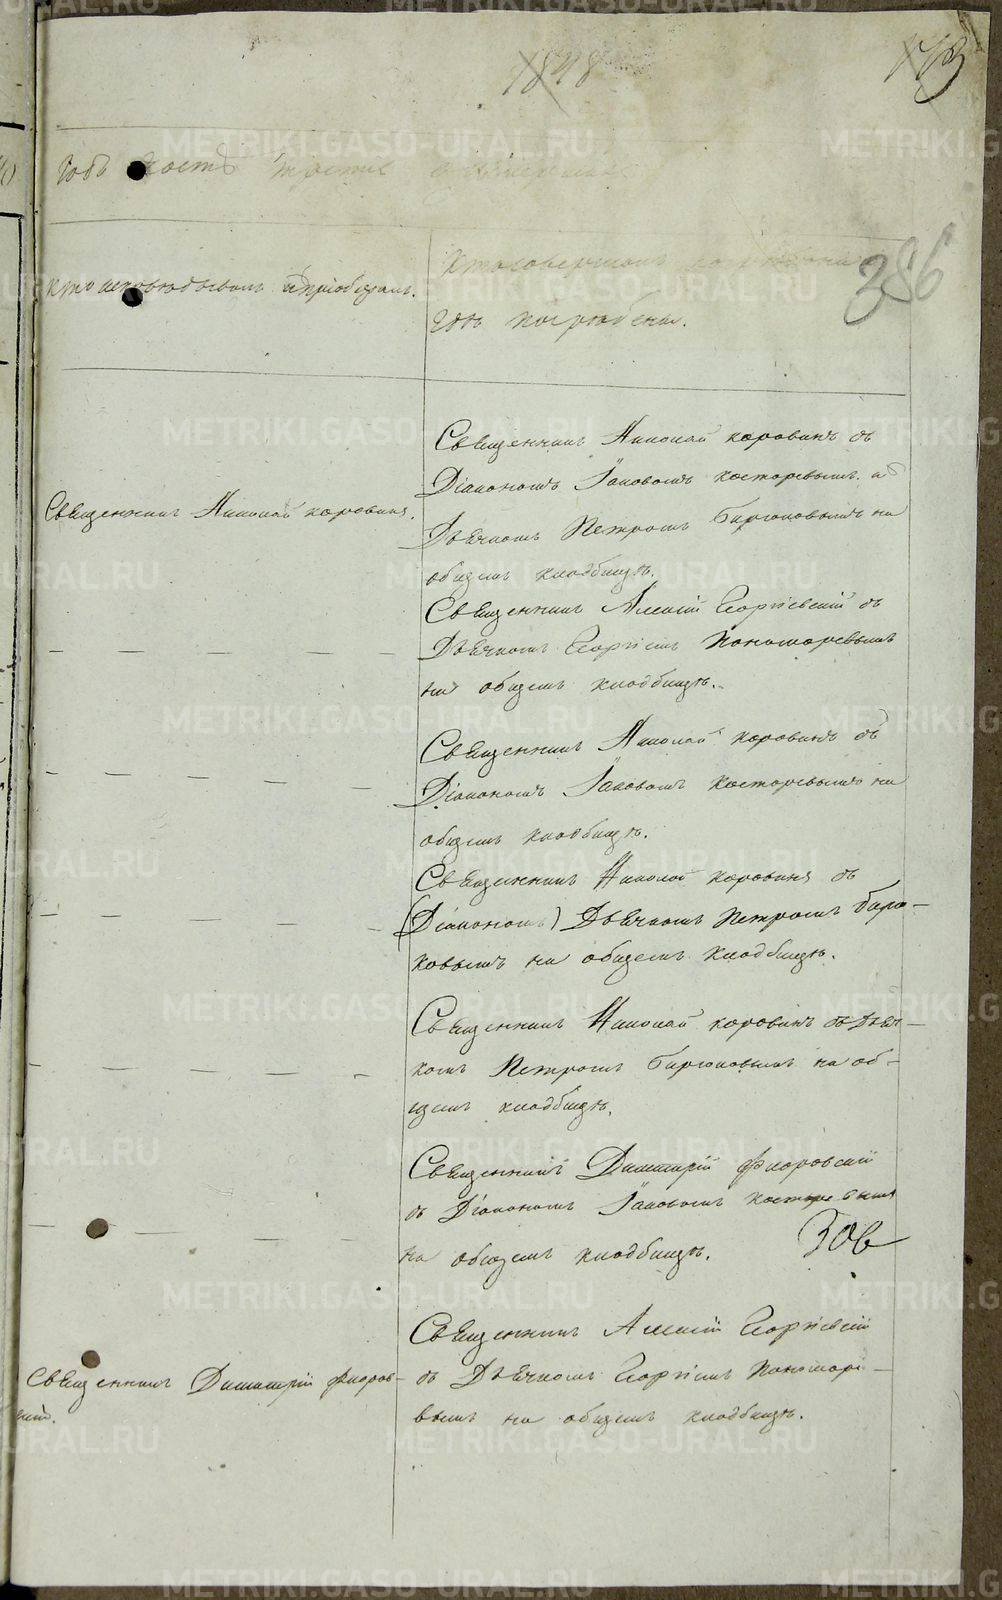 1848
386
Годъ часть третія о умершихъ
Кто исповѣдывалъ и пріобщалъ.
Кто совершалъ погребеніе
гдѣ погребены.
Священникъ Николай Коровинъ.
Священникъ Николай Коровинъ съ
Діакономъ Іаковомъ Косторевымъ и
Дьячкомъ Петромъ Бирюковымъ на
общемъ кладбищѣ.
Священникъ Алексій Георгіевскій съ
Дьячкомъ Георгіемъ Пономаревымъ
на общемъ кладбищѣ.
Священникъ Николай Коровинъ съ
Діакономъ Іаковомъ Косторевымъ на
общемъ кладбищѣ.
Священникъ Николай Коровинъ съ
(Діакономъ) Дьячкомъ Петромъ Бирю-
ковымъ на общемъ кладбищѣ.
Священникъ Николай Коровинъ съ Дьяч-
комъ Петромъ Бирюковымъ на об-
щемъ кладбищѣ.
Священникъ Димитрій Флоровскій
съ Діакономъ Іаковомъ Косторевымъ
на общемъ кладбищѣ.
Священникъ Димитрій Флоров-
скій.
Священникъ Алексій Георгіевскій
съ Дьячкомъ Георгіемъ Пономаре-
вымъ на общемъ кладбищѣ.
METRIKI.GASO-URAL.RU